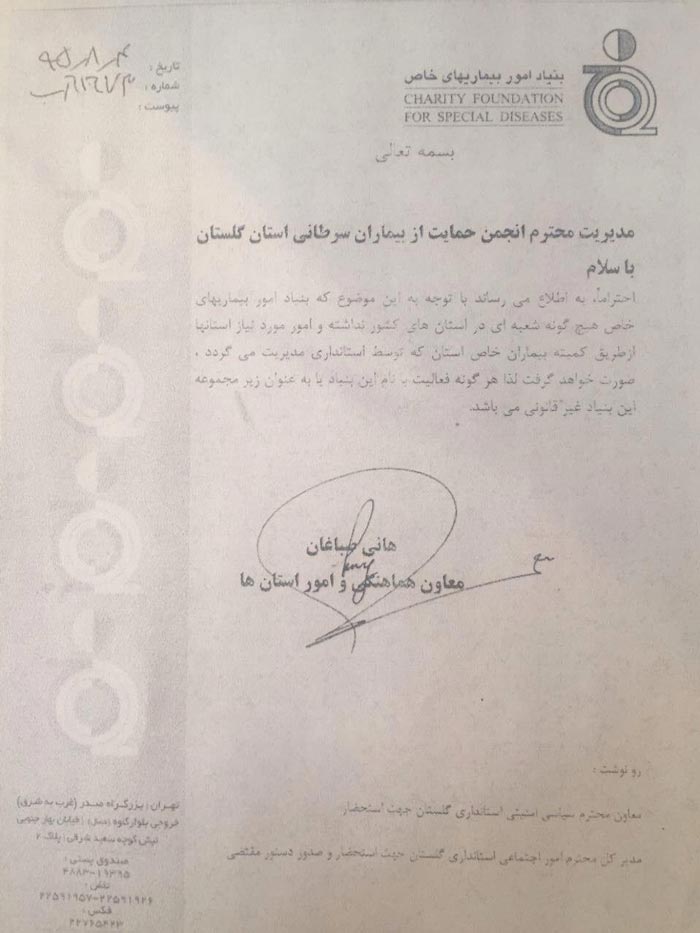 بنیاد امور بیماریهای خاص
CHARITY FOUNDATION
FOR SPECIAL DISEASES
تاریخ :
شماره :
پیوست :
بسمه تعالی
مدیریت محترم انجمن حمایت از بیماران سرطانی استان گلستان
با سلام
احتراماً، به اطلاع می رساند با توجه به این موضوع که بنیاد امور بیماریهای
خاص هیچ گونه شعبه ای در استان های کشور نداشته و امور مورد نیاز استانها
ازطریق کمیته بیماران خاص استان که توسط استانداری مدیریت می گردد ،
صورت خواهد گرفت لذا هر گونه فعالیت با نام این بنیاد یا به عنوان زیر مجموعه
این بنیاد غیر قانونی می باشد.
هانی صباغان
معاون هماهنگی و امور استان ها
رو نوشت :
معاون محترم سیاسی امنیتی استانداری گلستان جهت استحضار
مدیر کل محترم امور اجتماعی استانداری گلستان جهت استحضار و صدور دستور مقتضی
تهران : بزرگراه صدر (غرب به شرق)
خروجی بلوار کاوه (شمال) : خیابان بهار جنوبی
نبش کوچه سعید شرقی : پلاک ۲
صندوق پستی :
تلفن :
۲۲۵۹۱۹۵۷-۲۲۵۹۱۹۲۶
فکس :